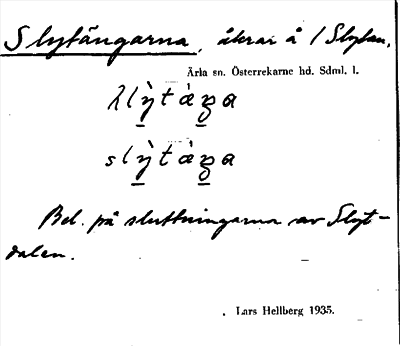 Slytängarna, åkrar å 1 Slytan,
Ärla sn. Österrekarne hd. Sdml. l.
slỳtàŋa
slỳtàŋa
Bel. på sluttningarna av Slyt-
dalen.
Lars Hellberg 1935.